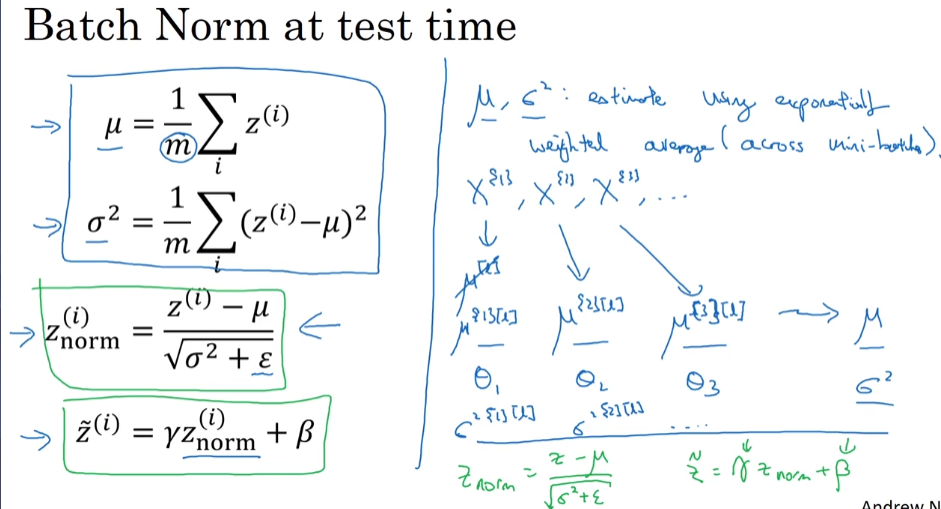 Batch Norm at test time
μ = 1/m ∑_i z^(i)
σ² = 1/m ∑_i (z^(i)−μ)²
z_norm^(i) = (z^(i) − μ) / √(σ² + ε)
z̃^(i) = γz_norm^(i) + β
μ, σ²: estimate using exponentially
weighted average (across mini-batches).
X^{1}, X^{2}, X^{3}, ...
μ^{1}[l] μ^{2}[l] μ^{3}[l] → μ
θ₁ θ₂ θ₃ σ²
σ²^{1}[l] σ²^{2}[l] ....
z_norm = (z − μ) / √(σ² + ε) z̃ = γ z_norm + β
Andrew N